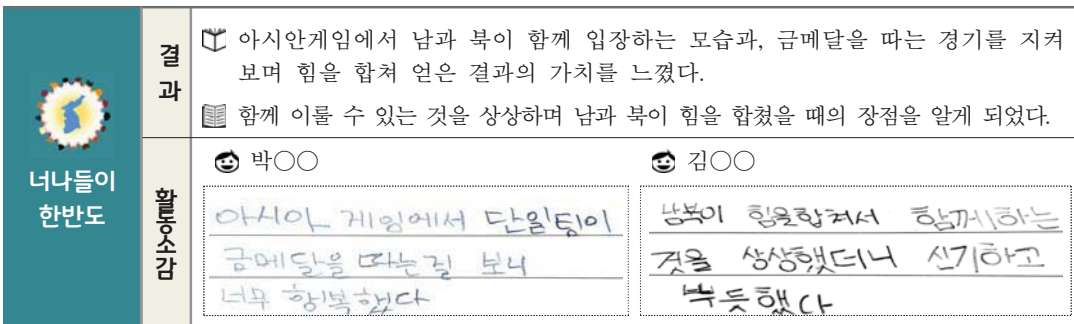 너나들이
한반도
결과
아시안게임에서 남과 북이 함께 입장하는 모습과, 금메달을 따는 경기를 지켜
보며 힘을 합쳐 얻은 결과의 가치를 느꼈다.
함께 이룰 수 있는 것을 상상하며 남과 북이 힘을 합쳤을 때의 장점을 알게 되었다.
활동소감
박○○
아시아 게임에서 단일팀이
금메달을 따는걸 보니
너무 행복했다
김○○
남북이 힘을합쳐서 함께하는
것을 상상했더니 신기하고
뿌듯했다